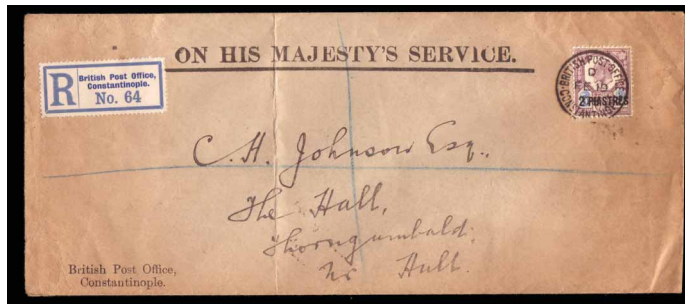 ON HIS MAJESTY'S SERVICE.
R
British Post Office,
Constantinople.
No. 64
BRITISH POST OFFICE
D
FE 10
CONSTANTINOPLE
2 PIASTRES
C. H. Johnson Esq.,
The Hall,
Thorngumbald
Nr Hull.
British Post Office,
Constantinople.